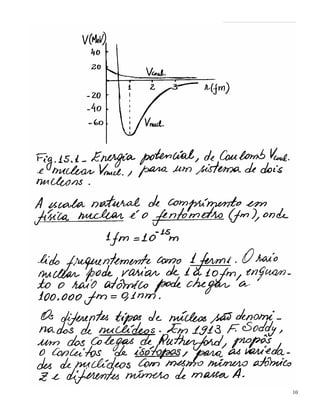 V(MeV)
40
20
Vcoul.
1 2 3 r(fm)
-20
-40
-60
Vnucl.
Fig. 15.1 - Energia potencial, de Coulomb Vcoul.
e nuclear Vnucl., para um sistema de dois
nucleons.
A escala natural de comprimento em
física nuclear é o fentometro (fm), onde
1 fm = 10⁻¹⁵ m
lido frequentemente como 1 fermi. O raio
nuclear pode variar de 1 a 10 fm, enquan-
to o raio atômico pode chegar a
100.000 fm = 0,1 nm.
Os diferentes tipos de núcleos são denomi-
nados de nuclídeos. Em 1913 F. Soddy,
um dos colegas de Rutherford, propôs
o conceito de isótopos, para as varieda-
des de nuclídeos com mesmo número atômico
Z e diferentes números de massa A.
10